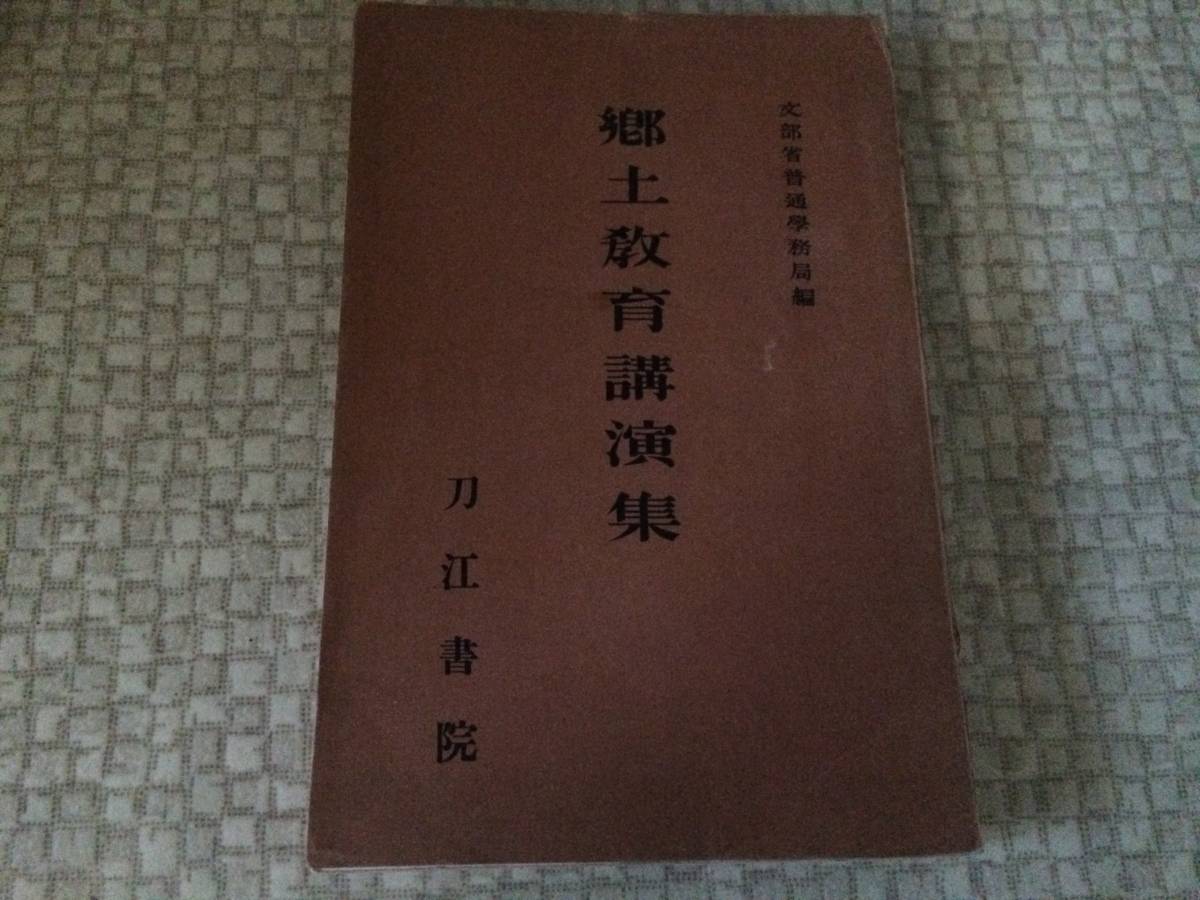 文部省普通學務局編
鄕土敎育講演集
刀江書院